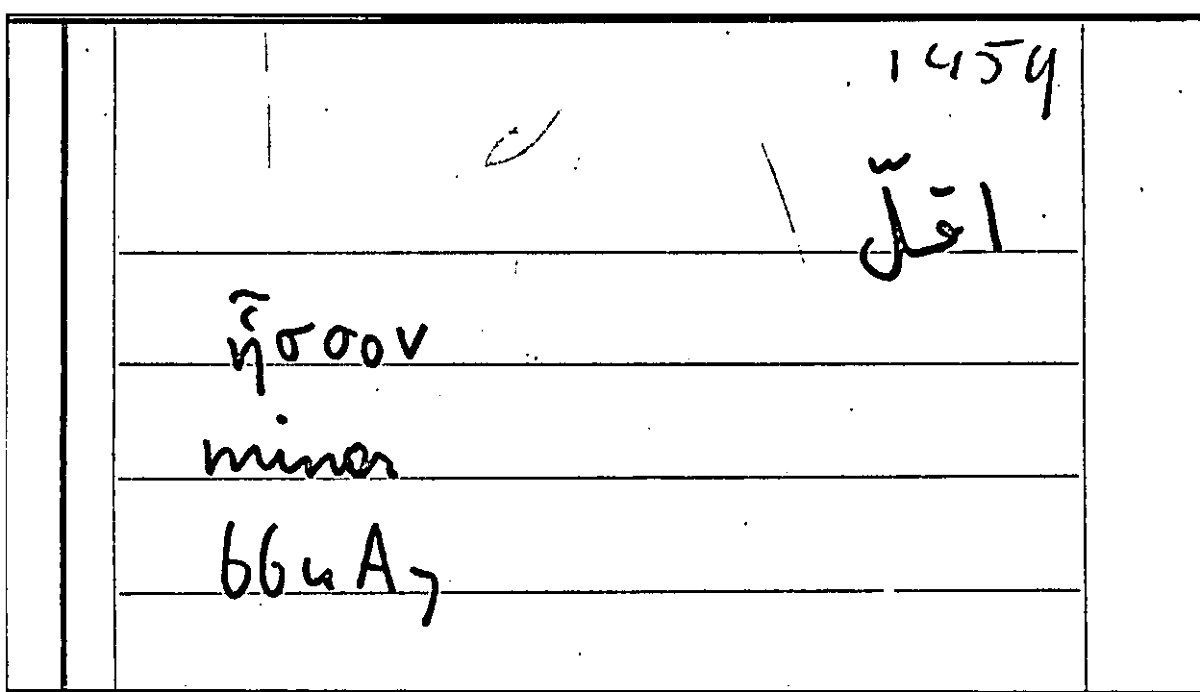 1459
اقلّ
ἧσσον
minor
66a A 7